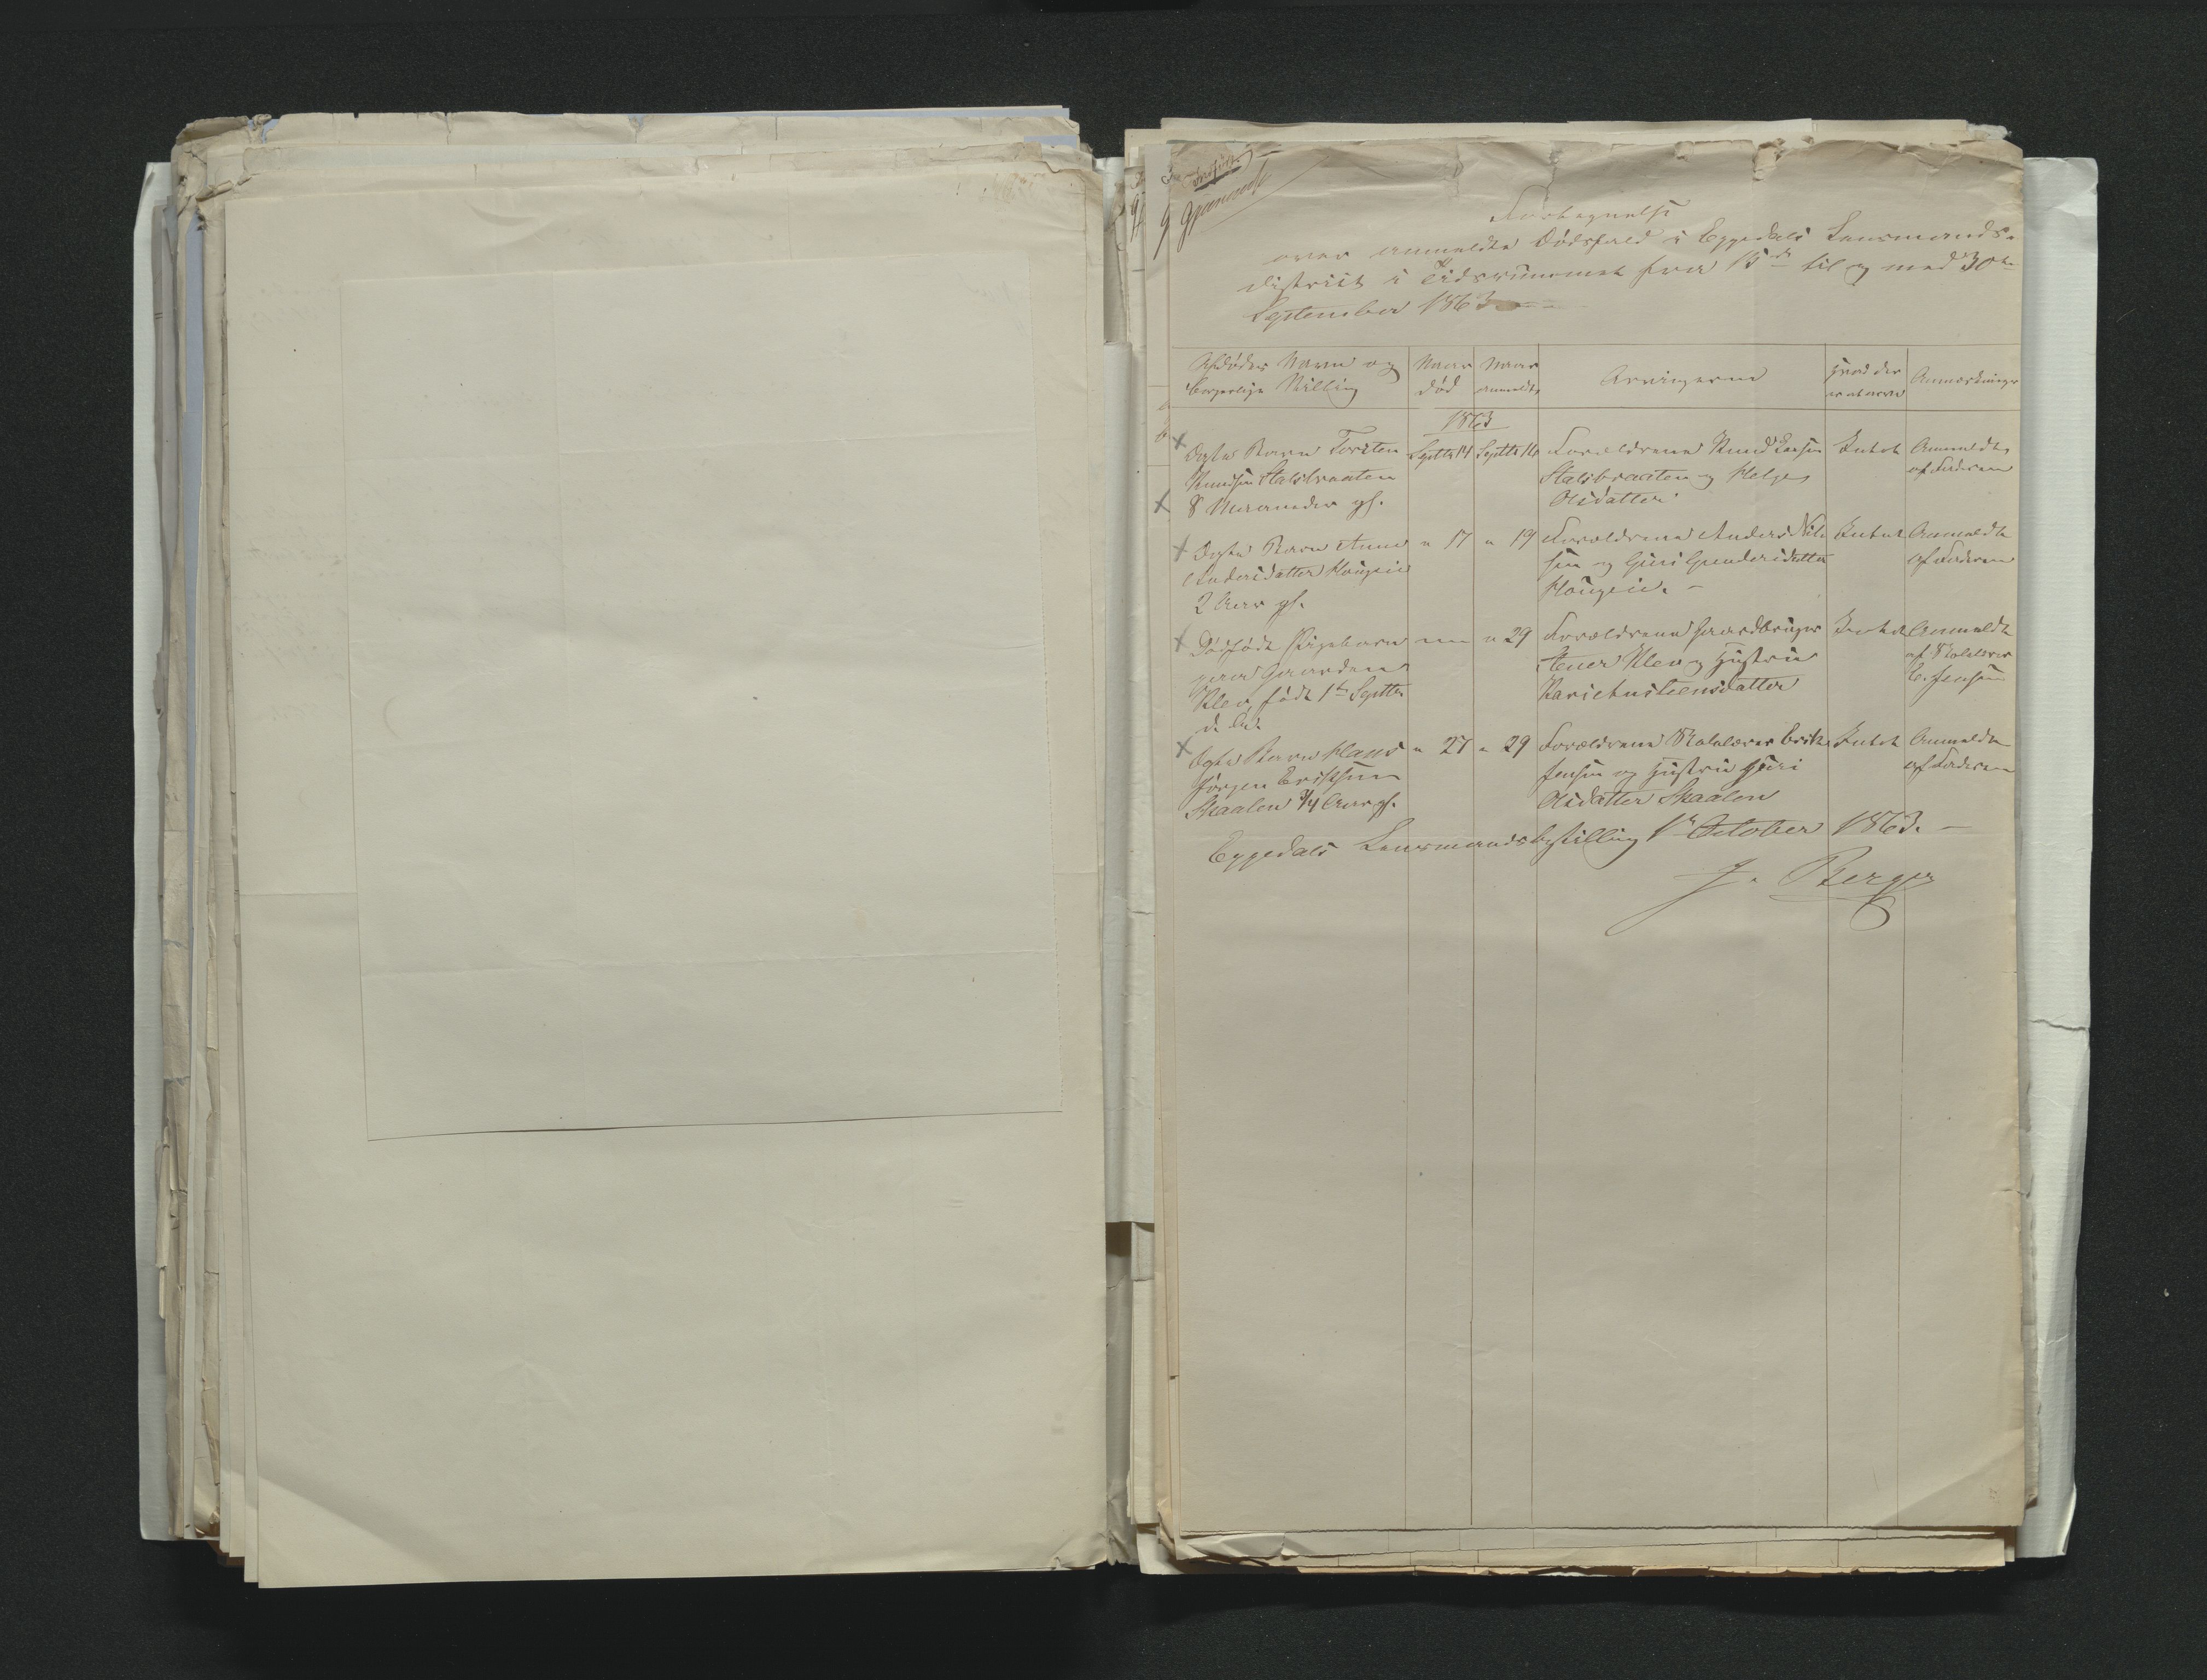 Fortegnelse
over anmeldte Dødsfald i Eggedals Lensmands-
distrikt i Tidsrummet fra 15de til og med 30te
September 1863
Afdødes Navn og
borgerlige Stilling
Naar
død
Naar
anmeldt
Arvingerne
Hvad der
er at arve
Anmærkninger
1863
Ægte Barn Torsten
Knudsen Stalsbraaten
8 Maaneder gl.
Septbr 14
Septbr 16
Forældrene Knud
Stalsbraaten og Helge
Olsdatter
Intet
Anmeldt
af Faderen
Ægte Barn Anne
Andersdatter Haugen
2 Aar gl.
" 17
" 19
Forældrene Anders Nil-
sen og Guri Gundersdatter
Haugen. -
Intet
Anmeldt
af Faderen
Dødfødt Pigebarn
paa Gaarden
Klev, født 1ste Septbr
" 29
Forældrene Gaardbruger
Stener Klev og Hustru
Kari Austeensdatter
Intet
Anmeldt
af Skolelærer
E. Jensen
Ægte Barn Hans
Jørgen Eriksen
Skaalen 3/4 Aar gl.
" 27
" 29
Forældrene Skolelærer Erik
Jensen og Hustru Guri
Olsdatter Skaalen
Intet
Anmeldt
af Faderen
Eggedals Lensmandsbestilling 1ste October 1863. -
J. Berger